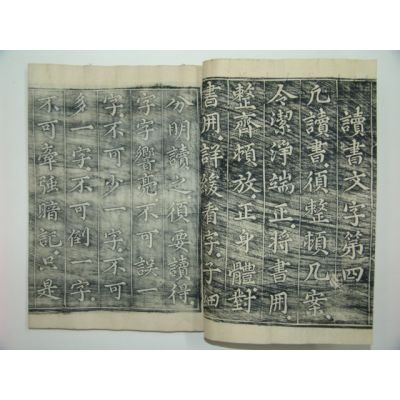 讀書文字第四
凡讀書須整頓几案
令潔淨端正將書冊
整齊頓放正身體對
書冊詳緩看字子細
分明讀之須要讀得
字字響亮不可誤一
字不可少一字不可
多一字不可倒一字
不可牽強暗記只是